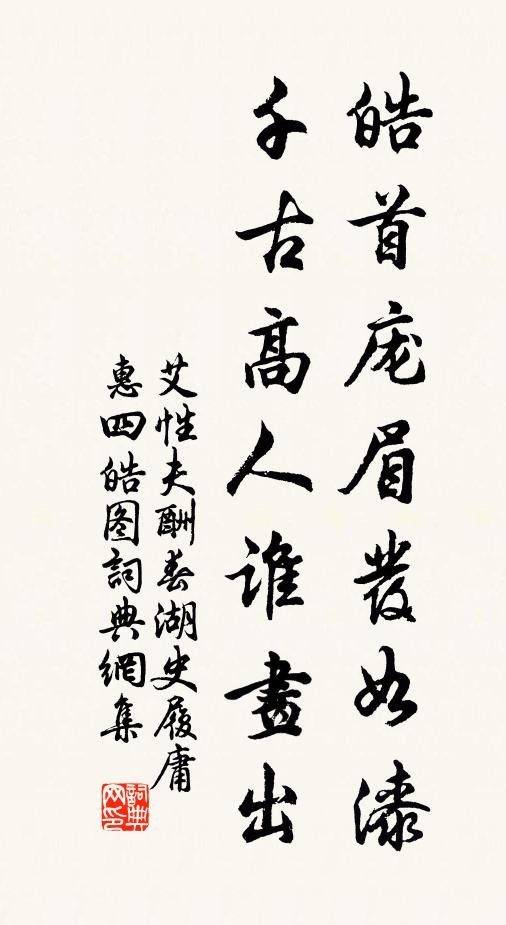 皓首庞眉发如漆
千古高人谁畫出
艾性夫酬春湖史履庸
惠四皓图詞典網集
詞典网印